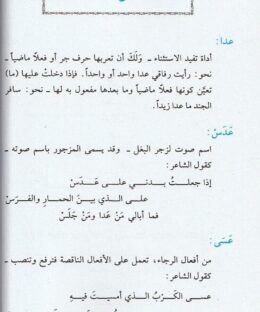 عدا:
أداة تفيد الاستثناء ـ وَلَكَ أن تعربها حرف جر أو فعلاً ماضياً ـ
نحو: رأيت رفاقي عدا واحد أو واحداً. فإذا دخلتْ عليها (ما)
تعيّن كونها فعلاً ماضياً وما بعدها مفعول به لها ـ نحو: سافر
الجند ما عدا زيداً.
عَدَسْ:
اسم صوت لزجر البغل ـ وقد يسمى المزجور باسم صوته ـ
كقول الشاعر:
إذا جعلتُ بدني على عَدَسْ
على الذي بين الحمار والفَرَسْ
فما أبالي مَنْ عدا ومَنْ جَلَسْ
عَسَى:
من أفعال الرجاء، تعمل على الأفعال الناقصة فترفع وتنصب ـ
كقول الشاعر:
عسى الكَرْبُ الذي أمسيتَ فيهِ